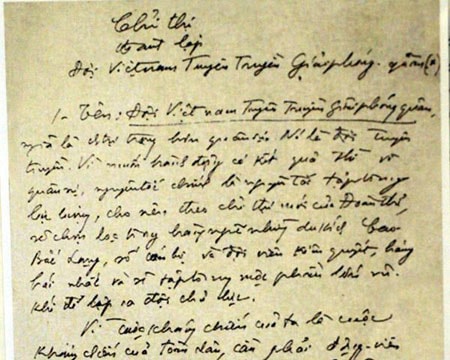 Chỉ thị
thành lập
Đội Việt nam Tuyên Truyền Giải phóng quân (*)
1- Tên: Đội Việt nam Tuyên Truyền Giải phóng quân,
nghĩa là chính trị trọng hơn quân sự. Nó là đội Tuyên
truyền. Vì muốn hành động có kết quả thì về
quân sự, nguyên tắc chính là nguyên tắc tập trung
lực lượng, cho nên, theo chỉ thị mới của Đoàn thể,
sẽ chọn lọc trong hàng ngũ những du kích Cao
Bắc Lạng, số cán bộ và đội viên kiên quyết, hăng
hái nhất và sẽ tập trung một phần lớn vũ
khí để lập ra đội chủ lực.
Vì cuộc kháng chiến của ta là cuộc
kháng chiến của toàn dân, cần phải động viên